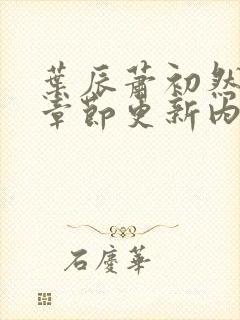 葉辰蕭初然
章節更新内
石慶華